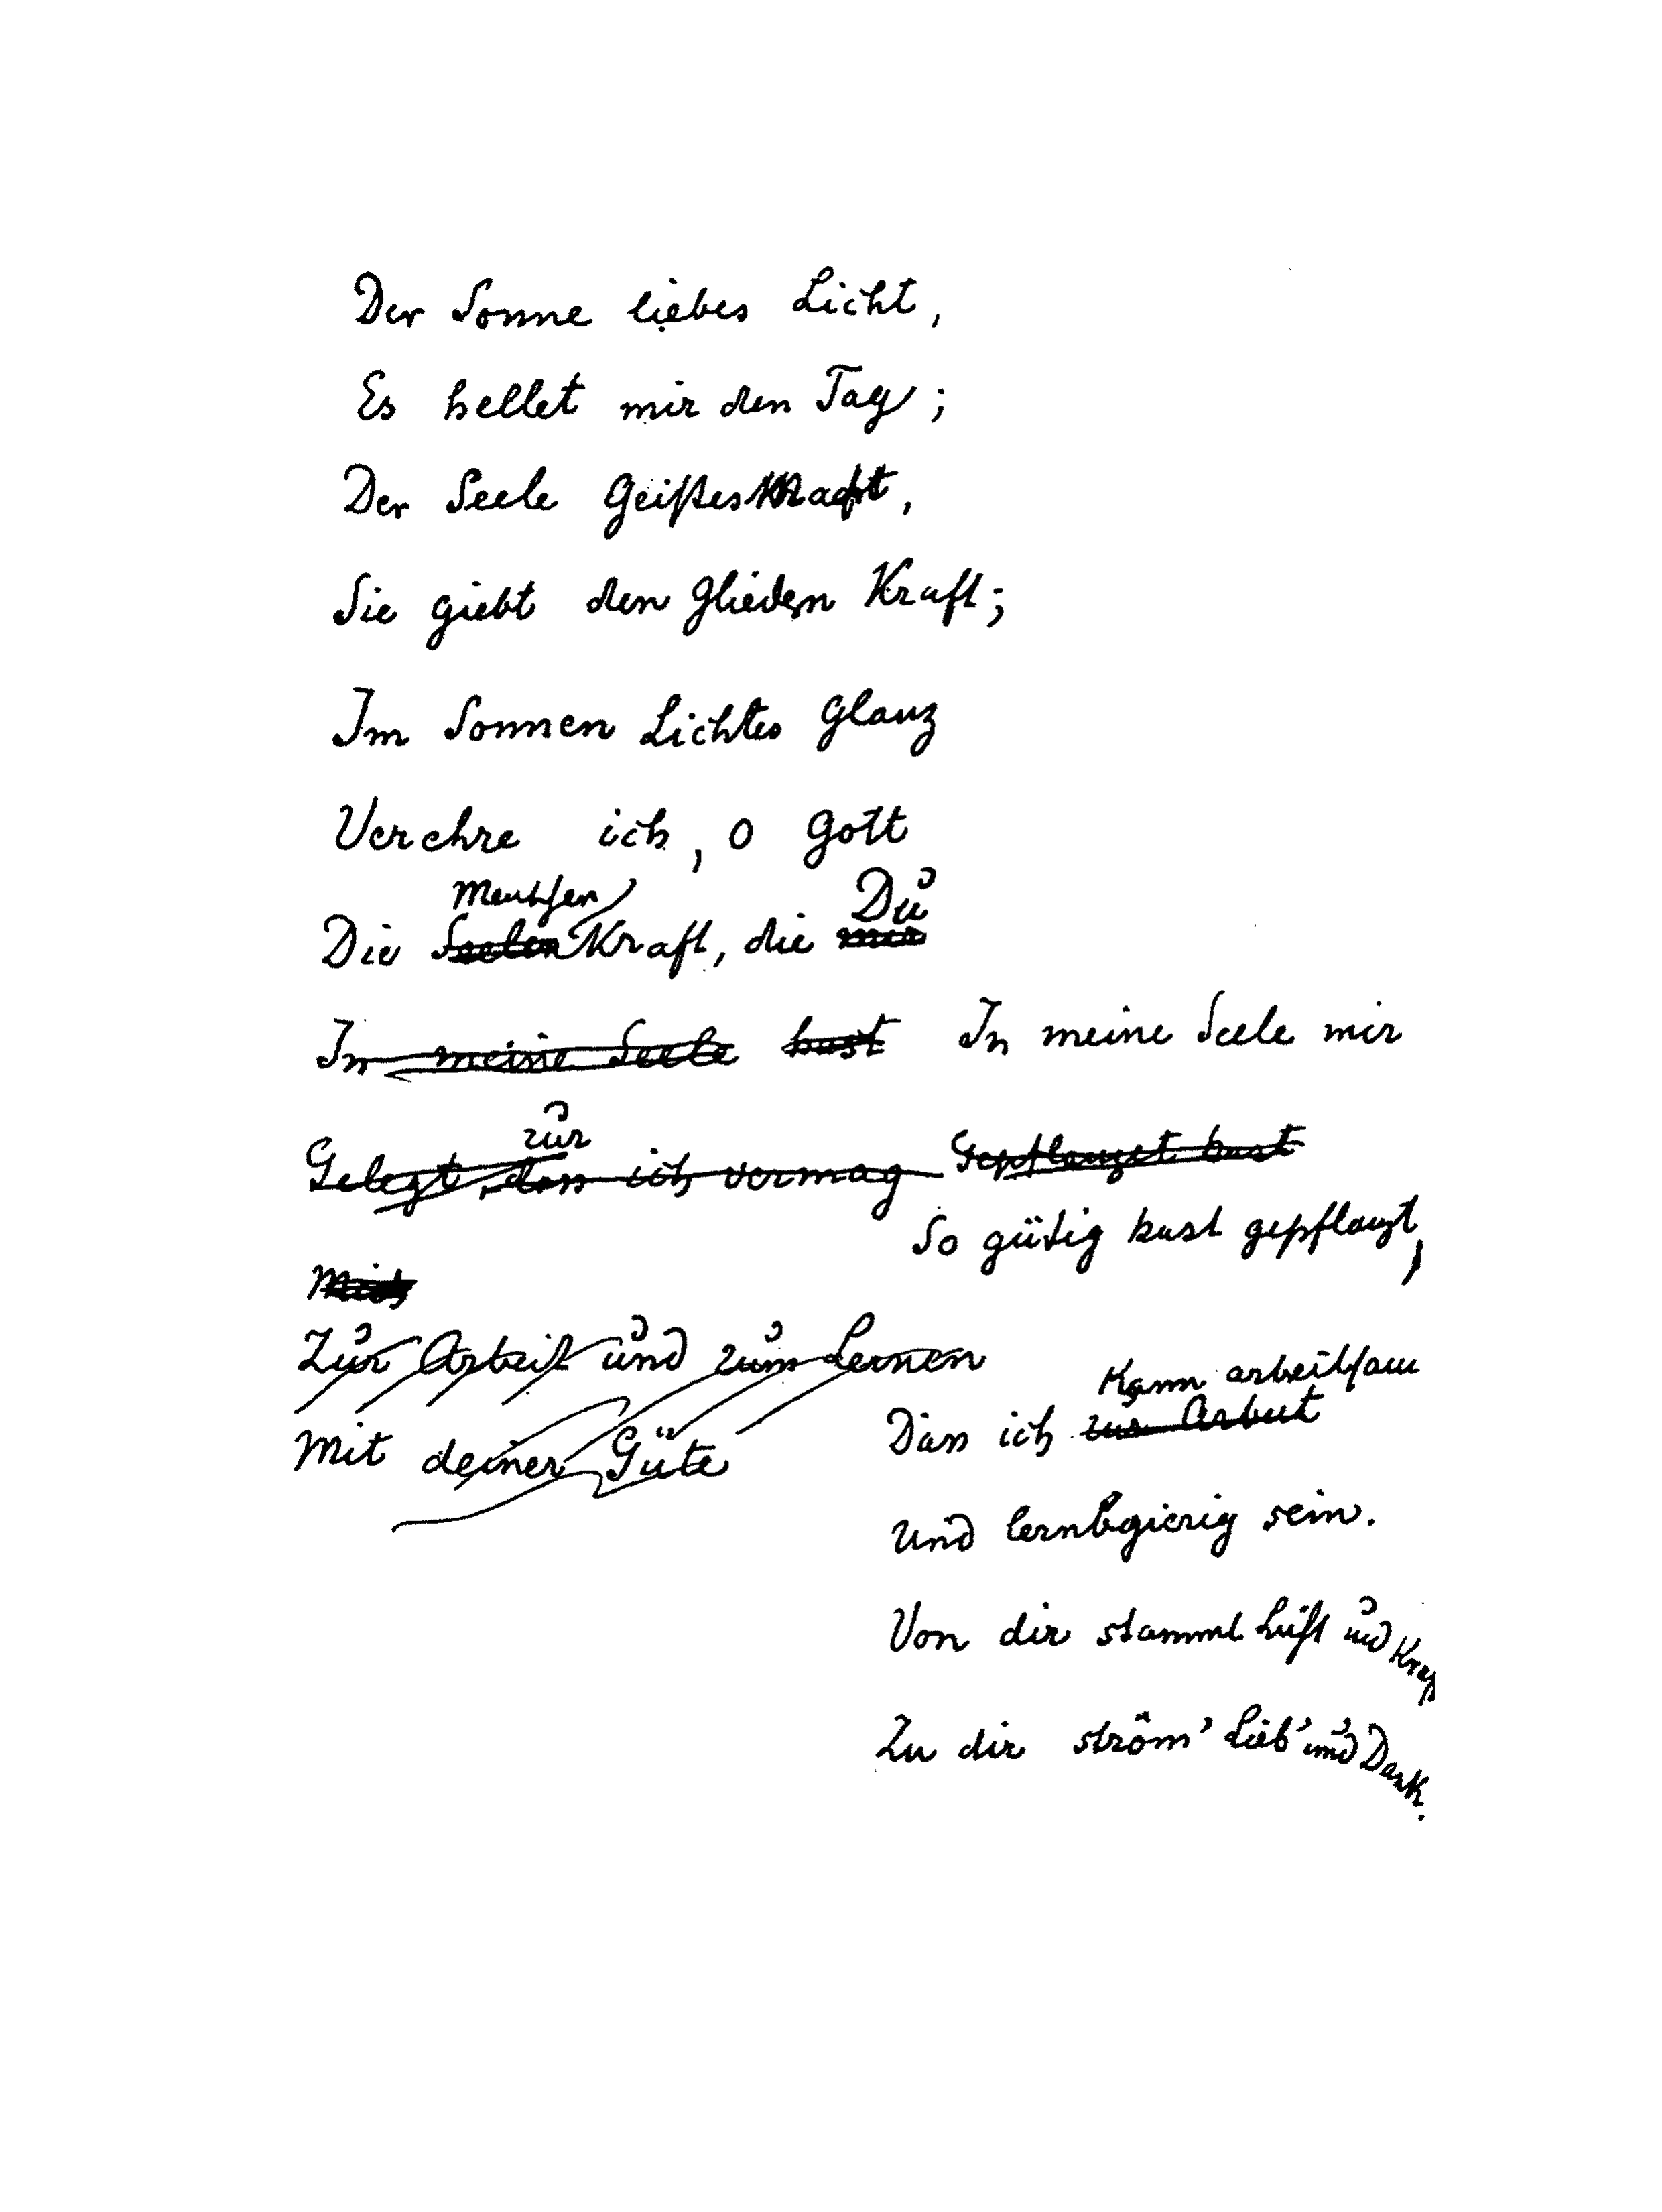 Der Sonne liebes Licht,
Es hellet mir den Tag;
Der Seele Geistesmacht,
Sie giebt den Gliedern Kraft;
Im Sonnen Lichtes Glanz
Verehre ich, o Gott
Menschen Du
Die Seelen Kraft, die mir
In meine Seele hast In meine Seele mir
zur
Gelegt, dass ich vermag Gepflanzet hast
So gütig hast gepflanzt,
Mich
Zur Arbeit und zum Lernen
Kann arbeitsam
Mit deiner Güte
Dass ich zur Arbeit
Und lernbegierig sein.
Von dir stammt Luft und Kraf
Zu dir ström' Lieb' und Dank.